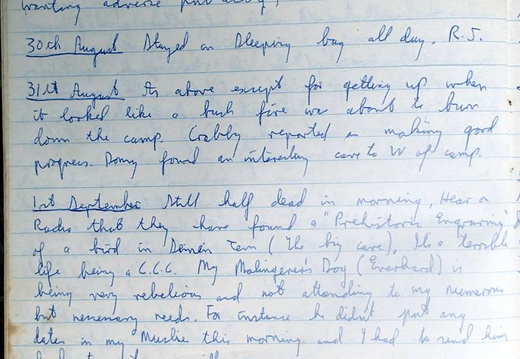 wanting adverse
30th August Stayed in Sleeping bag all day. R.S.
31st August As above except for getting up when
it looked like a bush fire was about to burn
down the camp. Crabby reported as making good
progress. Danny found an interesting cave to W of camp.
1st September Still half dead in morning, Hear on
Radio that they have found a "Prehistoric Engraving"
of a bird in Dömen Tem (The big cave). Its a terrible
life being a C.C.C. My Malingerer's Dog (Everhard) is
being very rebelious and not attending to my numerous
but necessary needs. For instance he didn't put any
dates in my Muslie this morning and I had to send him